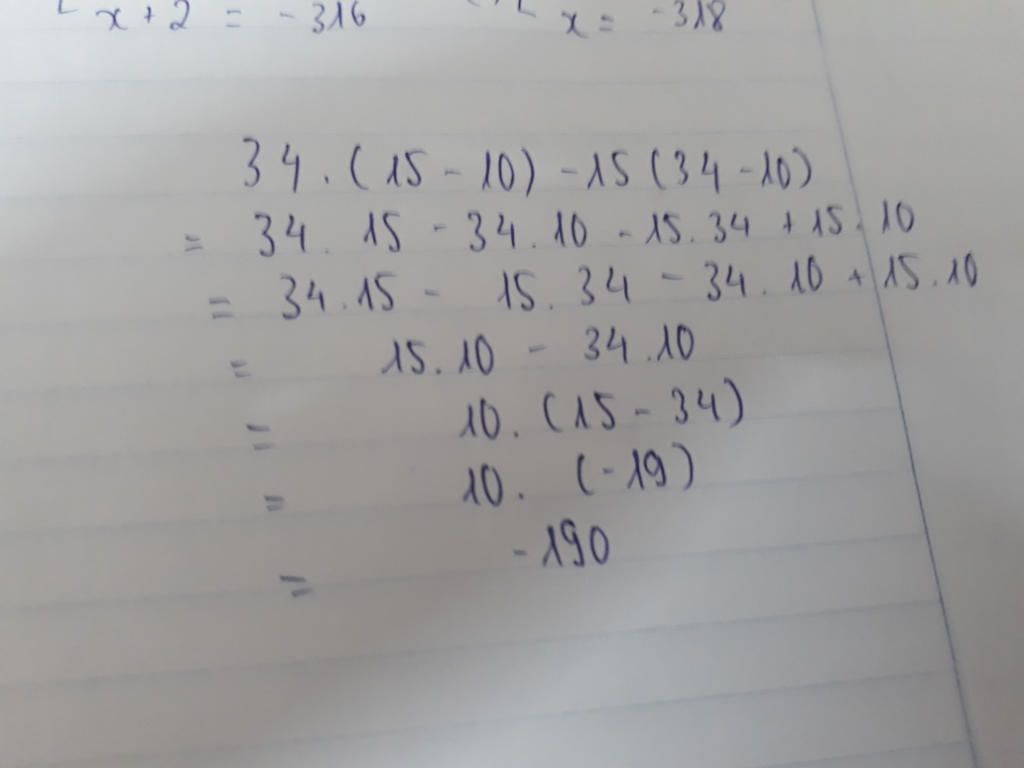 x + 2 = -316 x = -318
34 . (15 - 10) - 15 (34 - 10)
= 34 . 15 - 34 . 10 - 15 . 34 + 15 . 10
= 34 . 15 - 15 . 34 - 34 . 10 + 15 . 10
= 15 . 10 - 34 . 10
= 10 . (15 - 34)
= 10 . (-19)
= -190